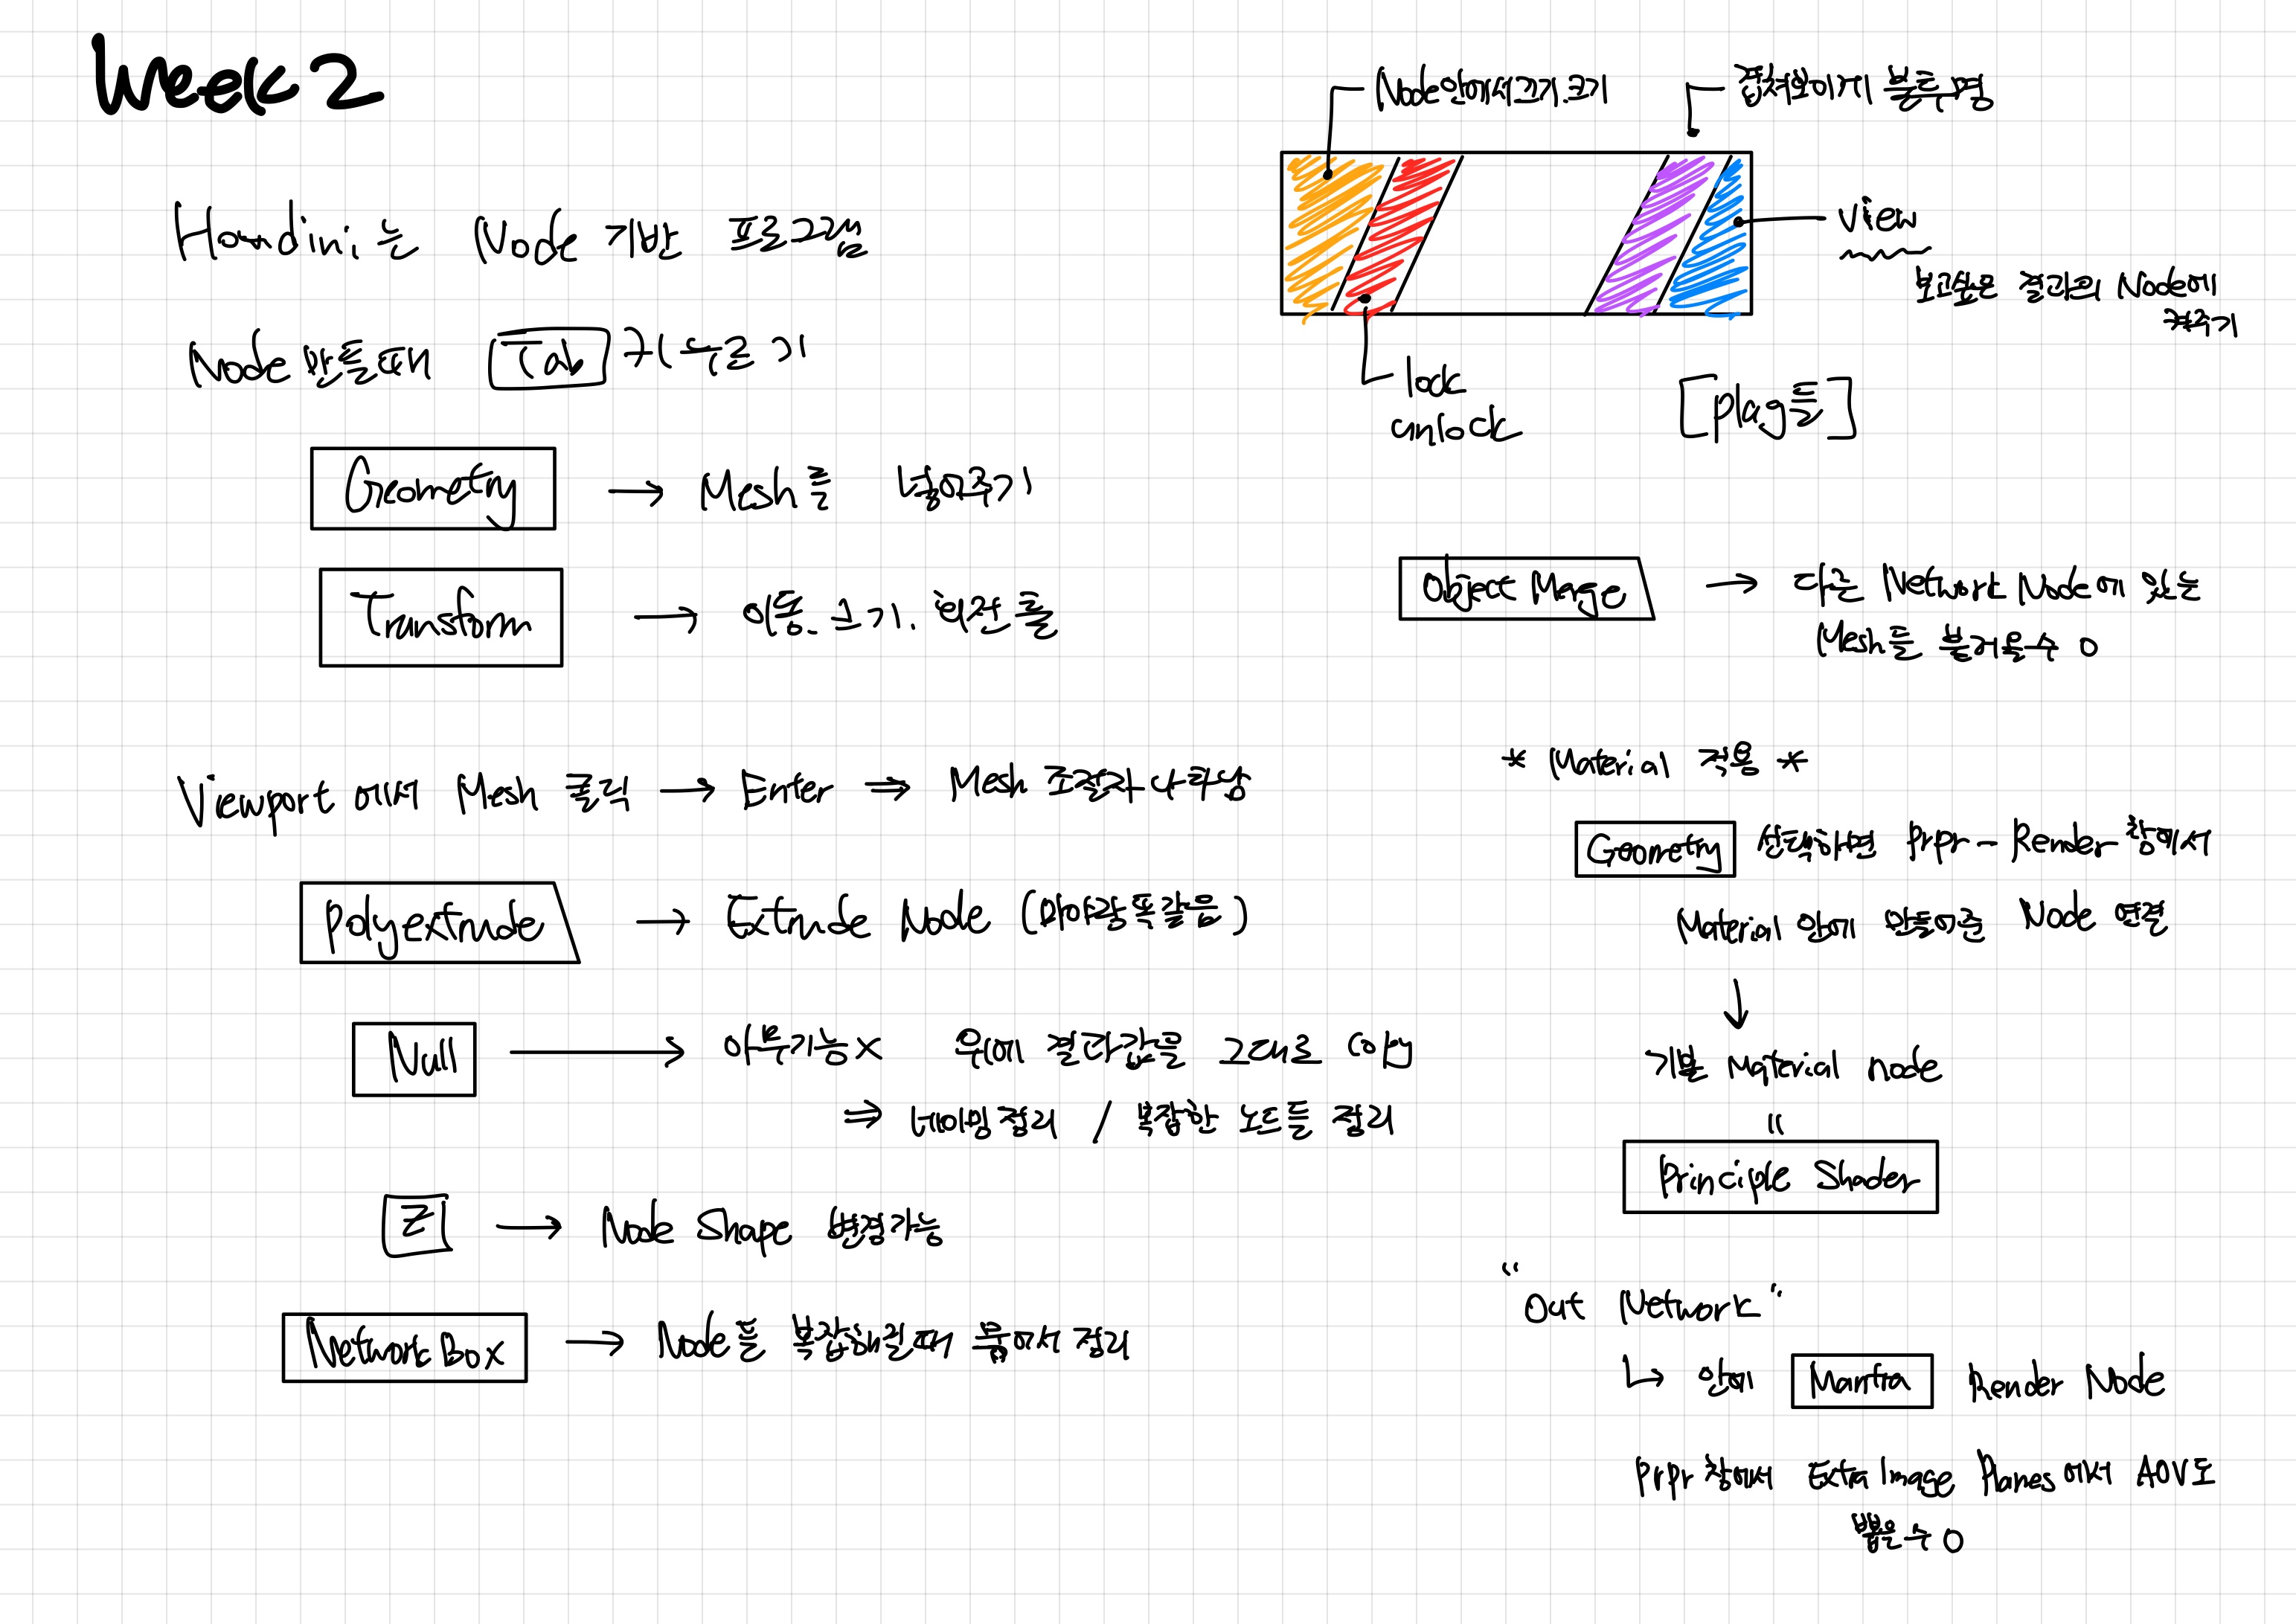 Week 2
Houdini 는 Node 기반 프로그램
Node 만들때 Tab 키 누르기
Geometry → Mesh를 넣어주기
Transform → 이동. 크기. 회전 툴
Viewport 에서 Mesh 클릭 → Enter ⇒ Mesh 조절자 나타남
Polyextrude → Extrude Node (마야랑 똑같음)
Null → 아무기능 x 위에 결과값을 그대로
⇒ 네이밍정리 / 복잡한 노드들 정리
Z → Node Shape 변경가능
Network Box → Node들 복잡해질때 묶어서 정리
Node안에서 끄기.크기
겹쳐보이게 불투명
view
보고싶은 결과의 Node에
켜주기
lock
unlock
[plag들]
Object Merge → 다른 Network Node에 있는
Mesh들 불러올수 O
* Material 적용 *
Geometry 선택하면 Prpr - Render 창에서
Material 안에 만들어준 Node 연결
↓
기본 Material node
=
Principle Shader
"Out Network"
↳ 안에 Mantra Render Node
Prpr 창에서 Extra Image Planes에서 AOV도
뽑을수 O